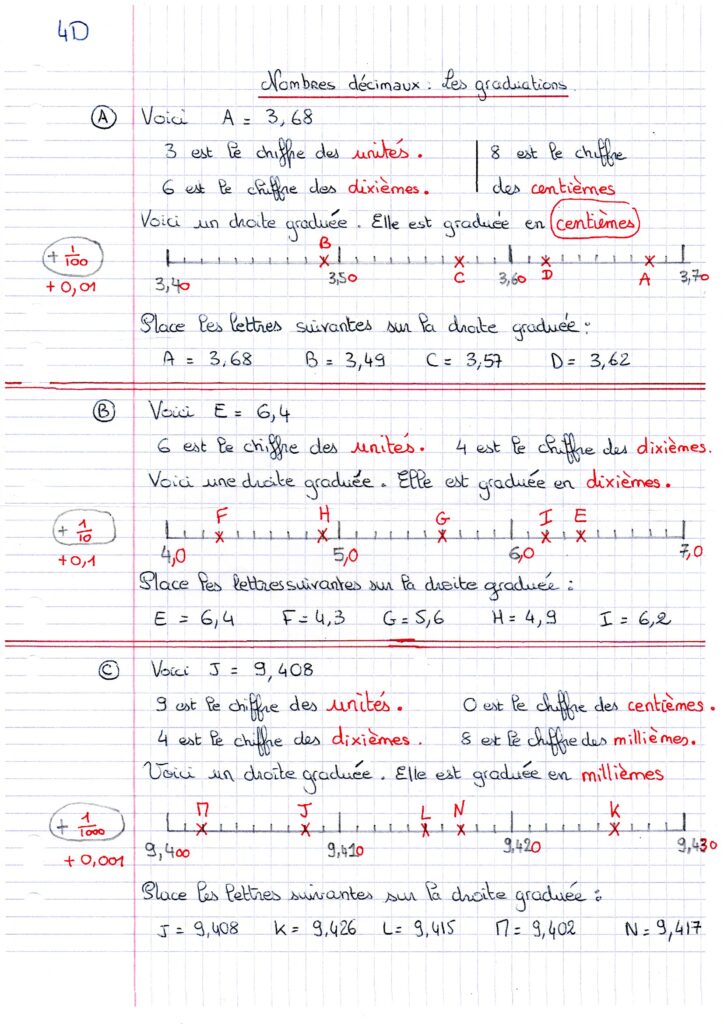 4D
Nombres décimaux : Les graduations
A Voici A = 3,68
3 est le chiffre des unités. 8 est le chiffre
6 est le chiffre des dixièmes. des centièmes
Voici un droite graduée. Elle est graduée en centièmes
B
+ 1/100
C D A
+ 0,01 3,40 3,50 3,60 3,70
Place les lettres suivantes sur la droite graduée :
A = 3,68 B = 3,49 C = 3,57 D = 3,62
B Voici E = 6,4
6 est le chiffre des unités. 4 est le chiffre des dixièmes.
Voici une droite graduée. Elle est graduée en dixièmes.
F H G I E
+ 1/10
+0,1 4,0 5,0 6,0 7,0
Place les lettres suivantes sur la droite graduée :
E = 6,4 F = 4,3 G = 5,6 H = 4,9 I = 6,2
C Voici J = 9,408
9 est le chiffre des unités. 0 est le chiffre des centièmes.
4 est le chiffre des dixièmes. 8 est le chiffre des millièmes.
Voici un droite graduée. Elle est graduée en millièmes
M J L N K
+ 1/1000
+ 0,001 9,400 9,410 9,420 9,430
Place les lettres suivantes sur la droite graduée :
J = 9,408 K = 9,426 L = 9,415 M = 9,402 N = 9,417